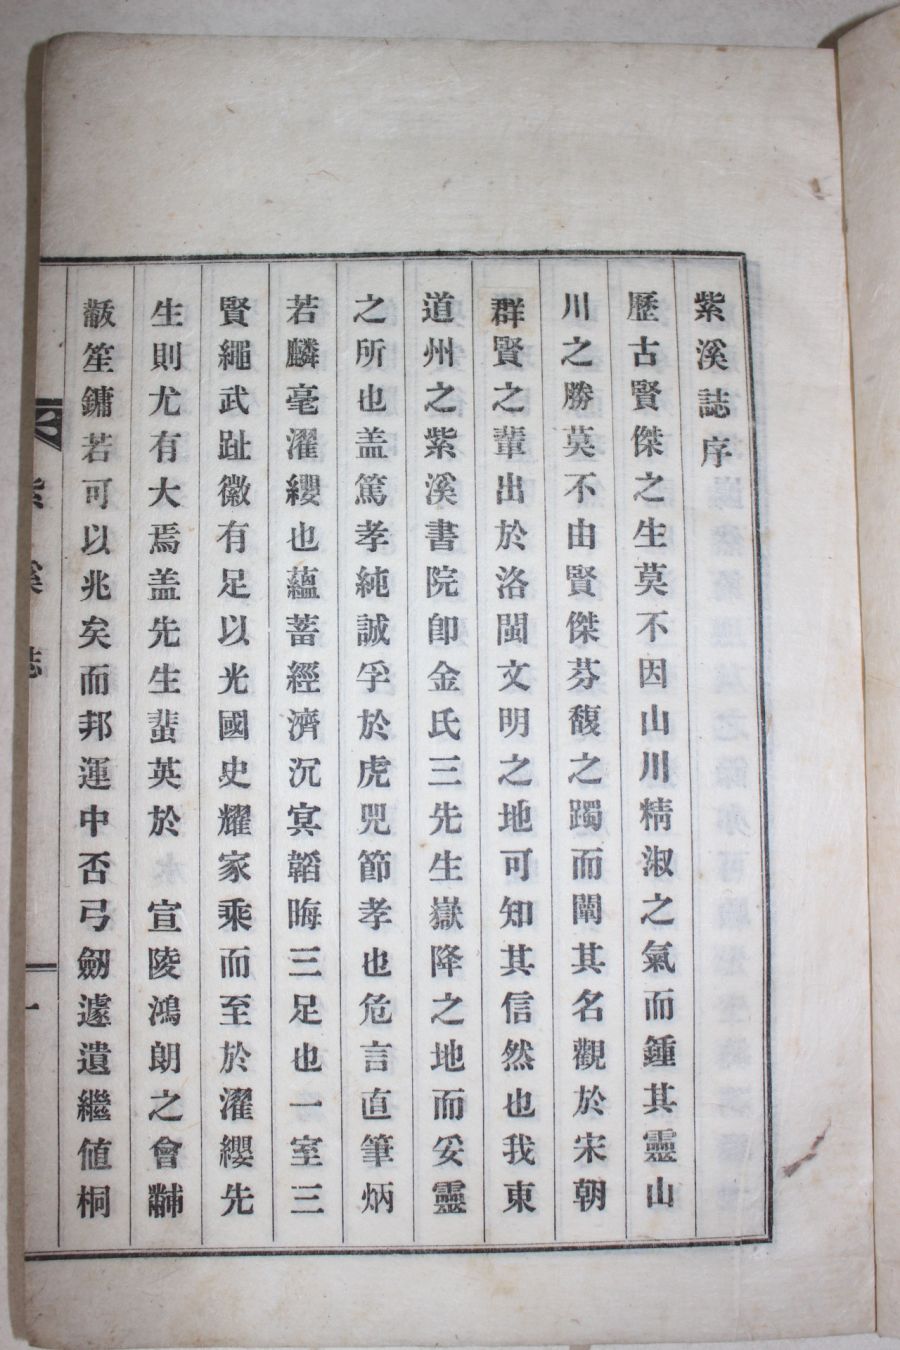 紫溪誌序
歷古賢傑之生莫不因山川精淑之氣而鍾其靈山
川之勝莫不由賢傑芬馥之躅而闡其名觀於宋朝
群賢之輩出於洛閩文明之地可知其信然也我東
道州之紫溪書院卽金氏三先生嶽降之地而妥靈
之所也盖篤孝純誠孚於虎兕節孝也危言直筆炳
若麟毫濯纓也蘊蓄經濟沉冥韜晦三足也一室三
賢繩武趾徽有足以光國史耀家乘而至於濯纓先
生則尤有大焉盖先生蜚英於 宣陵鴻朗之會黼
黻笙鏞若可以兆矣而邦運中否弓劒遽遺繼値桐
紫溪誌
一